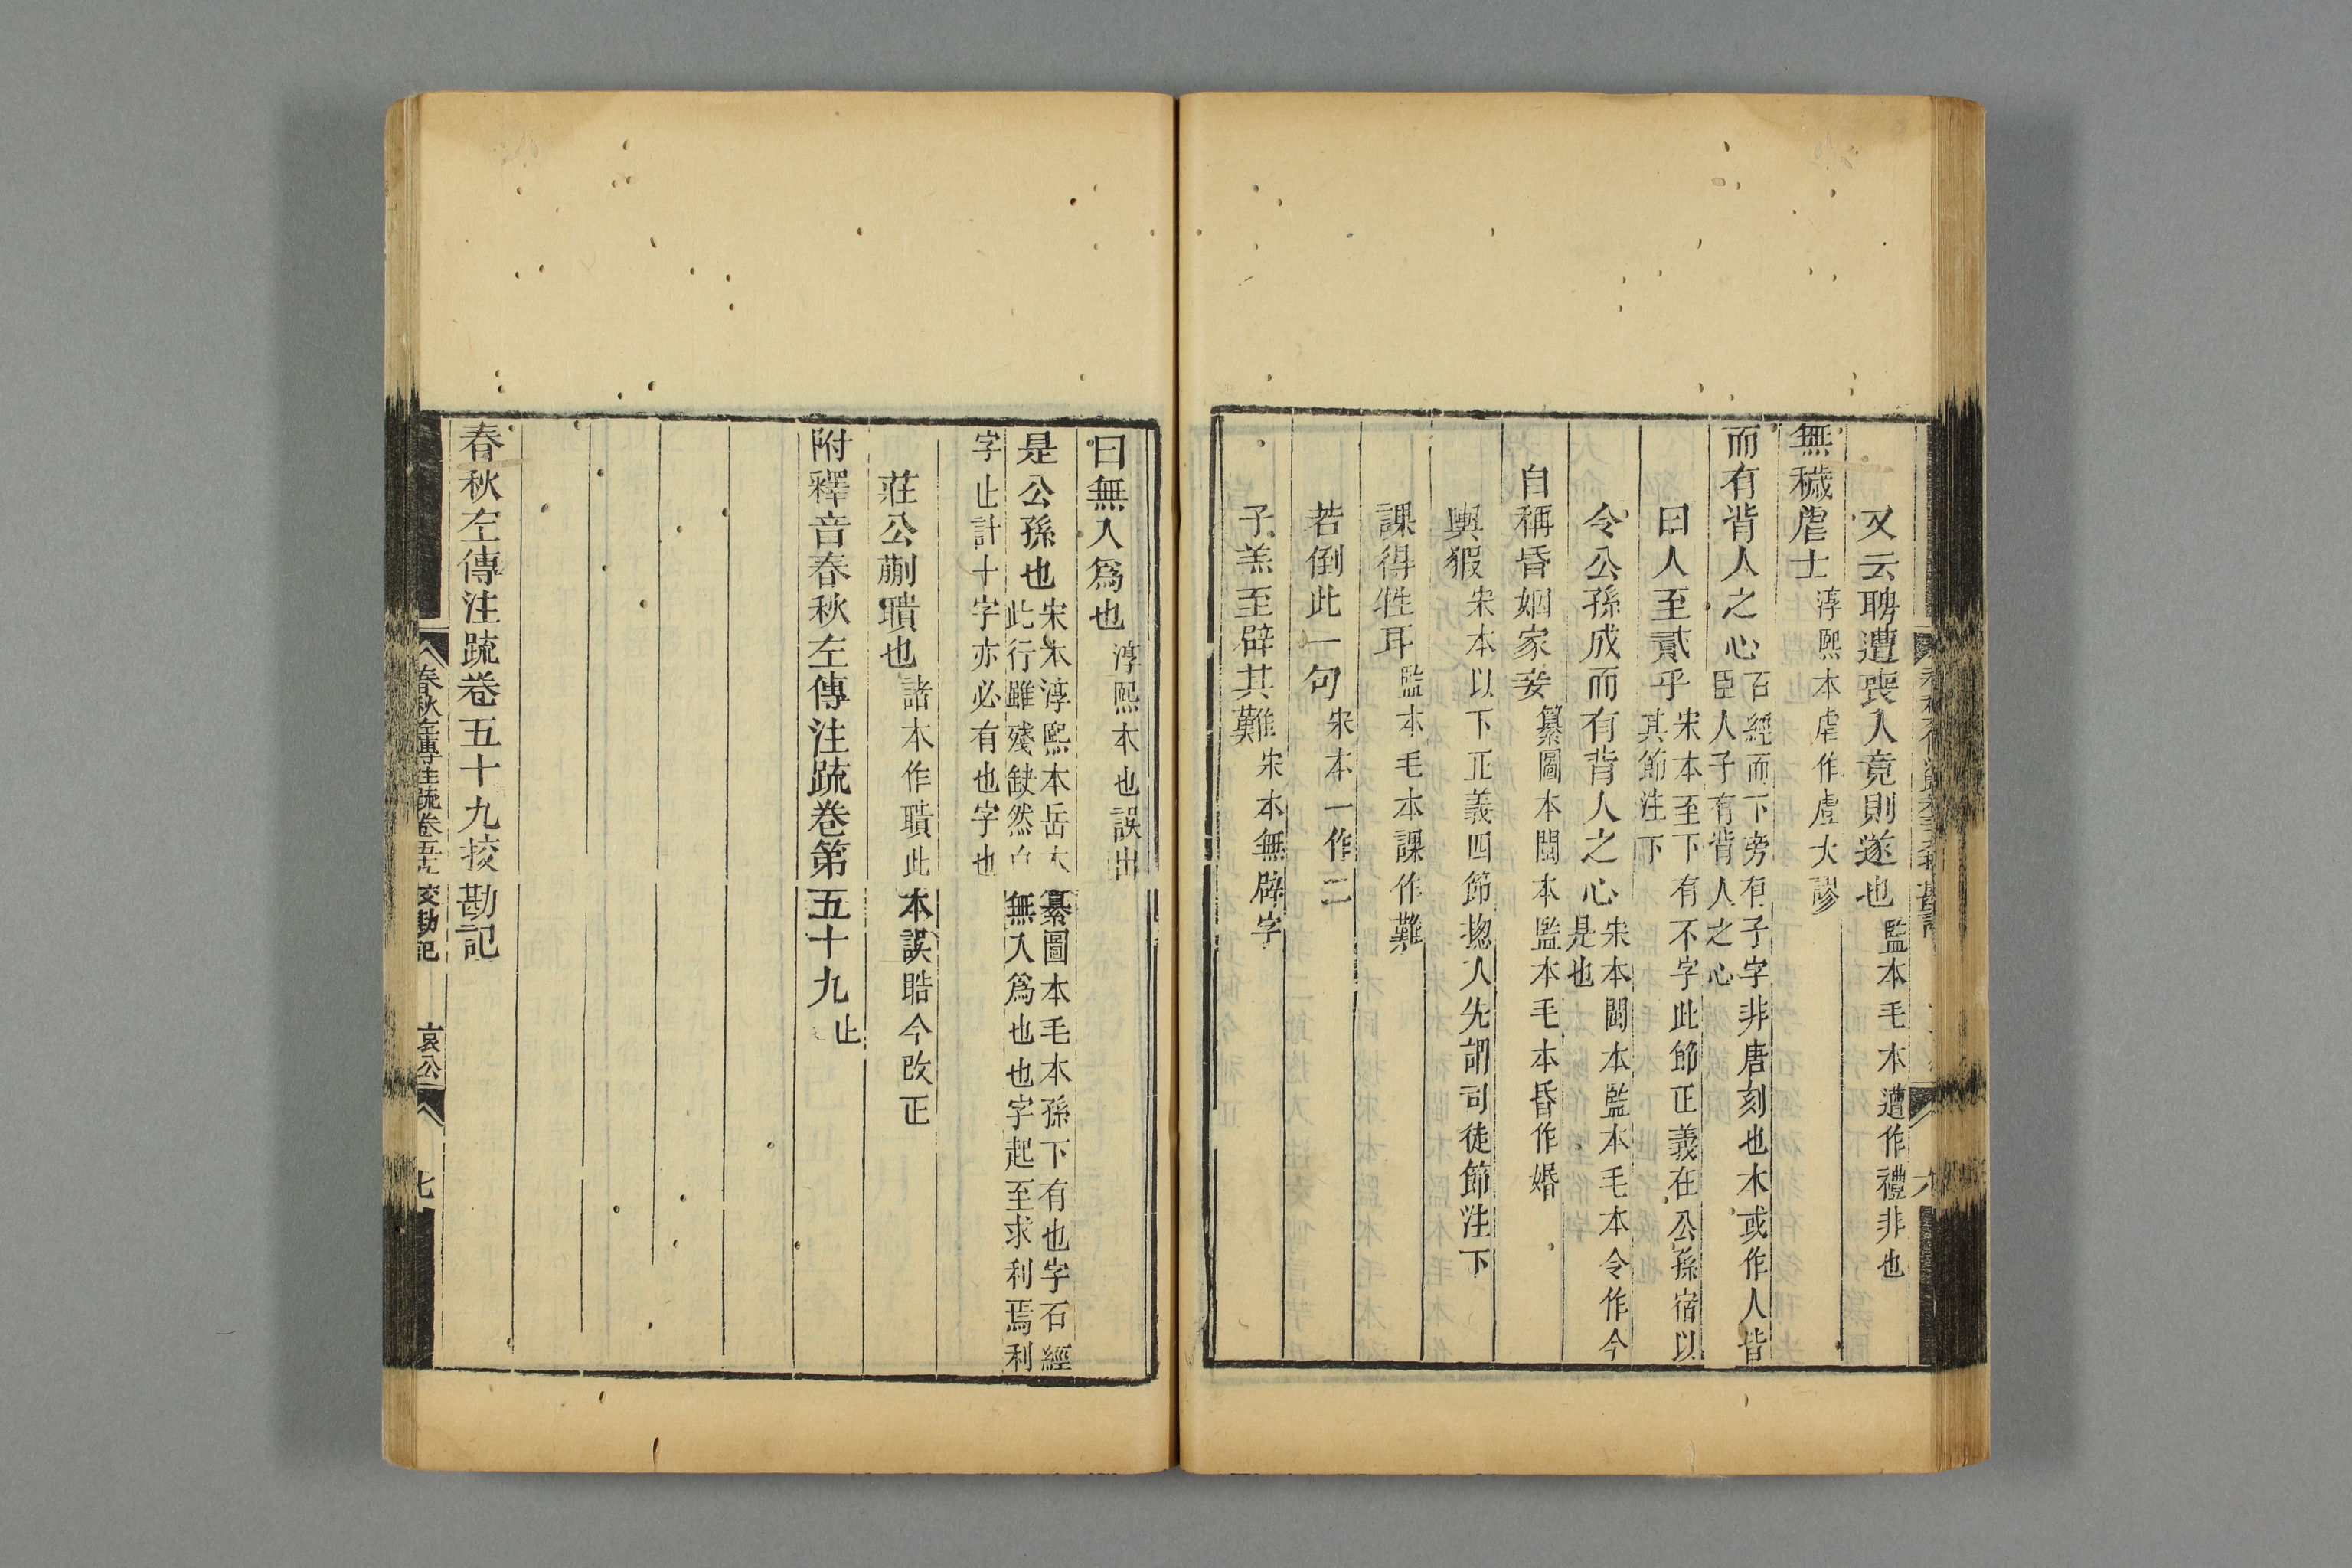 又云聘遭喪入竟則遂也監本毛本遭作禮非也
無穢虐士淳熙本虐作虛大謬
而有背人之心石經而下旁有子字非唐刻也木或作人皆臣人子有背人之心
曰人至貳乎宋本至下有不字此節正義在公孫宿以其節注下
令公孫成而有背人之心宋本閩本監本毛本令作今是也
自稱昏姻家妾纂圖本閩本監本毛本昏作婚
輿猳宋本以下正義四節揔入先謂司徒節注下
課得牲耳監本毛本課作難
若倒此一句宋本一作二
子羔至辟其難宋本無辟字
曰無入爲也淳熙本也誤出
是公孫也宋本淳熙本岳本纂圖本毛本孫下有也字石經此行雖殘缺然自無入爲也也字起至求利焉利
字止計十字亦必有也字也
莊公蒯聵也諸本作聵此本誤瞆今改正
附釋音春秋左傳注疏卷第五十九止
春秋左傳注疏卷五十九挍勘記
春秋左傳注疏卷五十九 校勘記 哀公 七